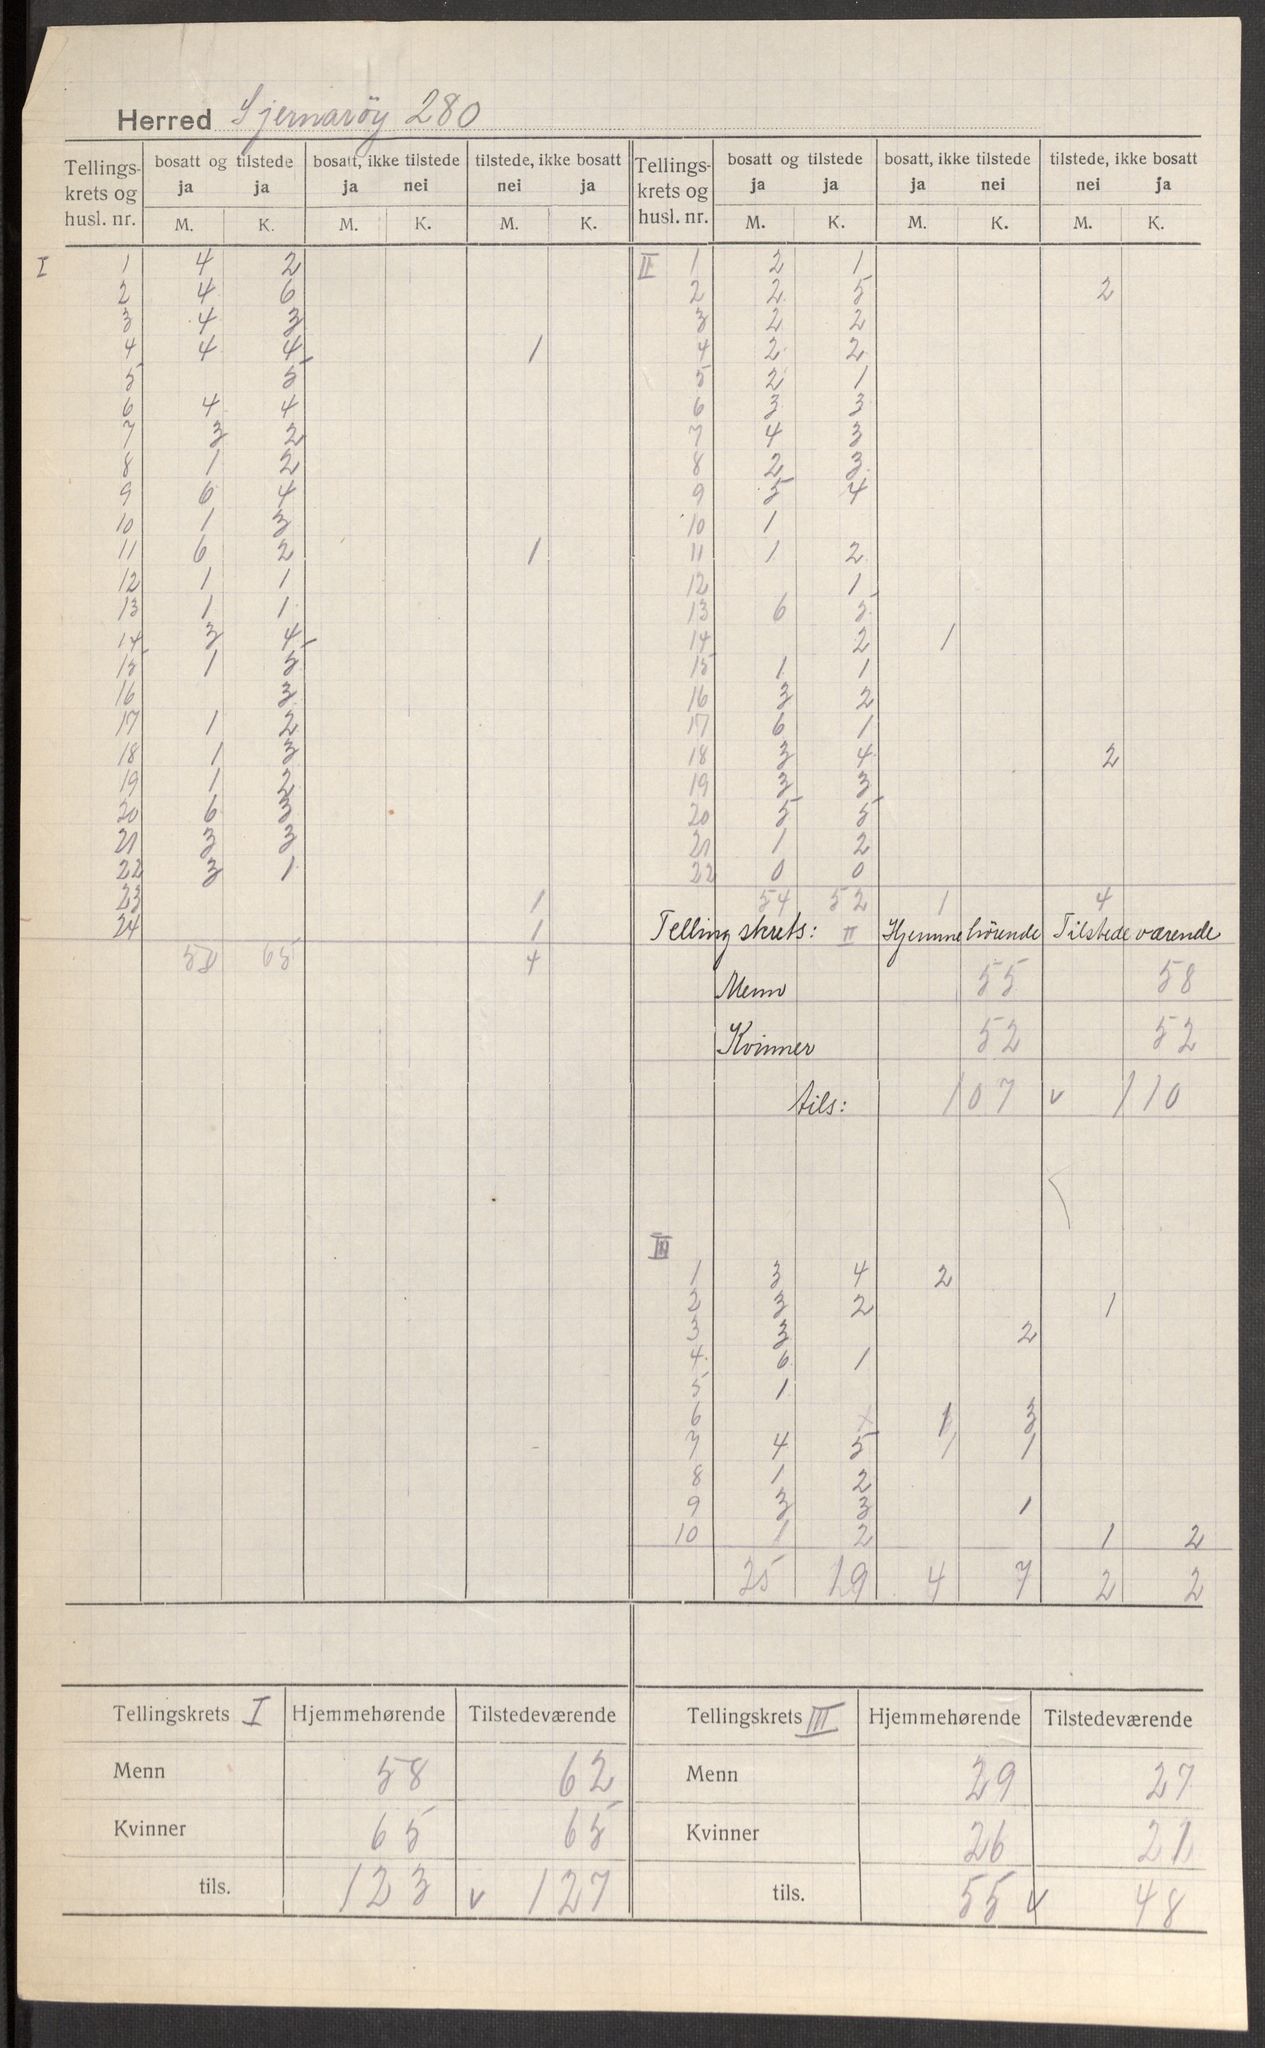 Herred Sjernarøy 280
Tellings- krets og husl. nr. | bosatt og tilstede ja ja | bosatt, ikke tilstede ja nei | tilstede, ikke bosatt nei ja | Tellings- krets og husl. nr. | bosatt og tilstede ja ja | bosatt, ikke tilstede ja nei | tilstede, ikke bosatt nei ja
M. K. M. K. M. K. M. K. M. K. M. K.
I 1 4 2
2 4 6
3 4 3
4 4 4 1
5 5
6 4 4
7 3 2
8 1 2
9 6 4
10 1 3
11 6 2 1
12 1 1
13 1 1
14 3 4
15 1 5
16 3
17 1 2
18 1 3
19 1 2
20 6 3
21 3 3
22 3 1
23 1
24 1
58 65 4
II 1 2 1
2 2 5 2
3 2 2
4 2 2
5 2 1
6 3 3
7 4 3
8 2 3
9 5 4
10 1
11 1 2
12 1
13 6 5
14 2 1
15 1 1
16 3 2
17 6 1
18 3 4 2
19 3 3
20 5 5
21 1 2
22 0 0
54 52 1 4
Tellingskrets: II Hjemmehörende Tilstedeværende
Menn 55 58
Kvinner 52 52
tils: 107 v 110
III
1 3 4 2
2 3 2 1
3 3 2
4 6 1
5 1
6 x 1 3
7 4 5 1 1
8 1 2
9 3 3 1
10 1 2 1 2
25 19 4 7 2 2
Tellingskrets I Hjemmehørende Tilstedeværende
Menn 58 62
Kvinner 65 65
tils. 123 v 127
Tellingskrets III Hjemmehørende Tilstedeværende
Menn 29 27
Kvinner 26 21
tils. 55 v 48